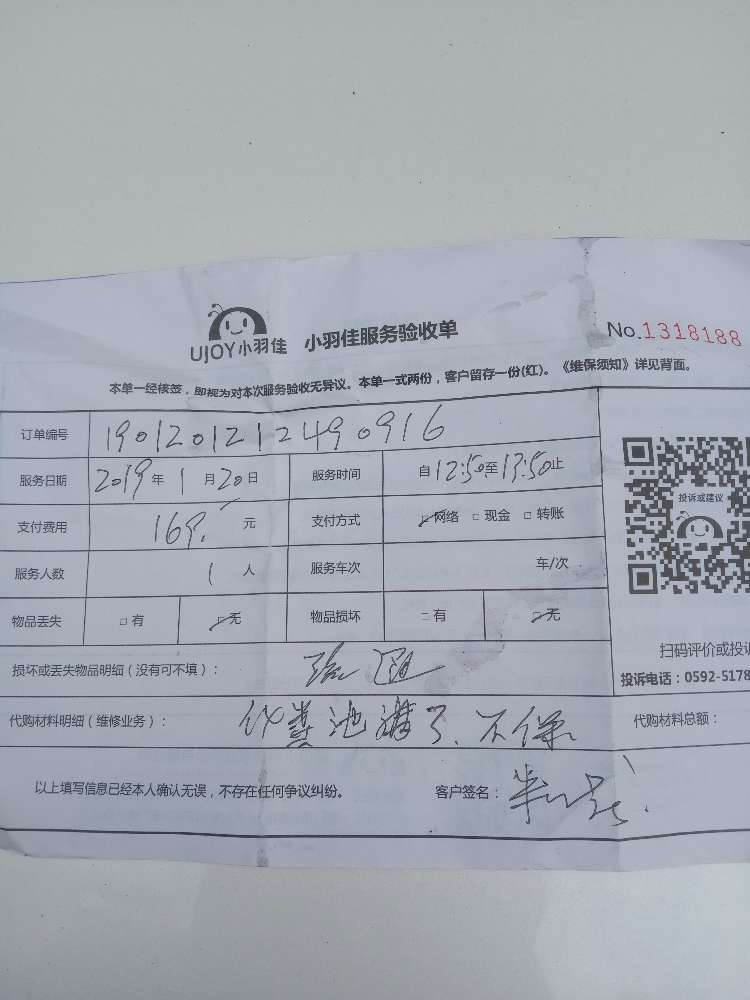 UJOY小羽佳 小羽佳服务验收单 No.1318188
本单一经核签，即视为对本次服务验收无异议。本单一式两份，客户留存一份(红)。《维保须知》详见背面。
订单编号 190120121249 0916
服务日期 2019年1月20日 服务时间 自12:50至13:50止
支付费用 169.元 支付方式 网络 现金 转账
投诉或建议
服务人数 1人 服务车次 车/次
物品丢失 有 无 物品损坏 有 无
扫码评价或投诉
损坏或丢失物品明细（没有可不填）：
投诉电话：0592-5178
代购材料明细（维修业务）： 化粪池满了、不保 代购材料总额：
以上填写信息已经本人确认无误，不存在任何争议纠纷。 客户签名：